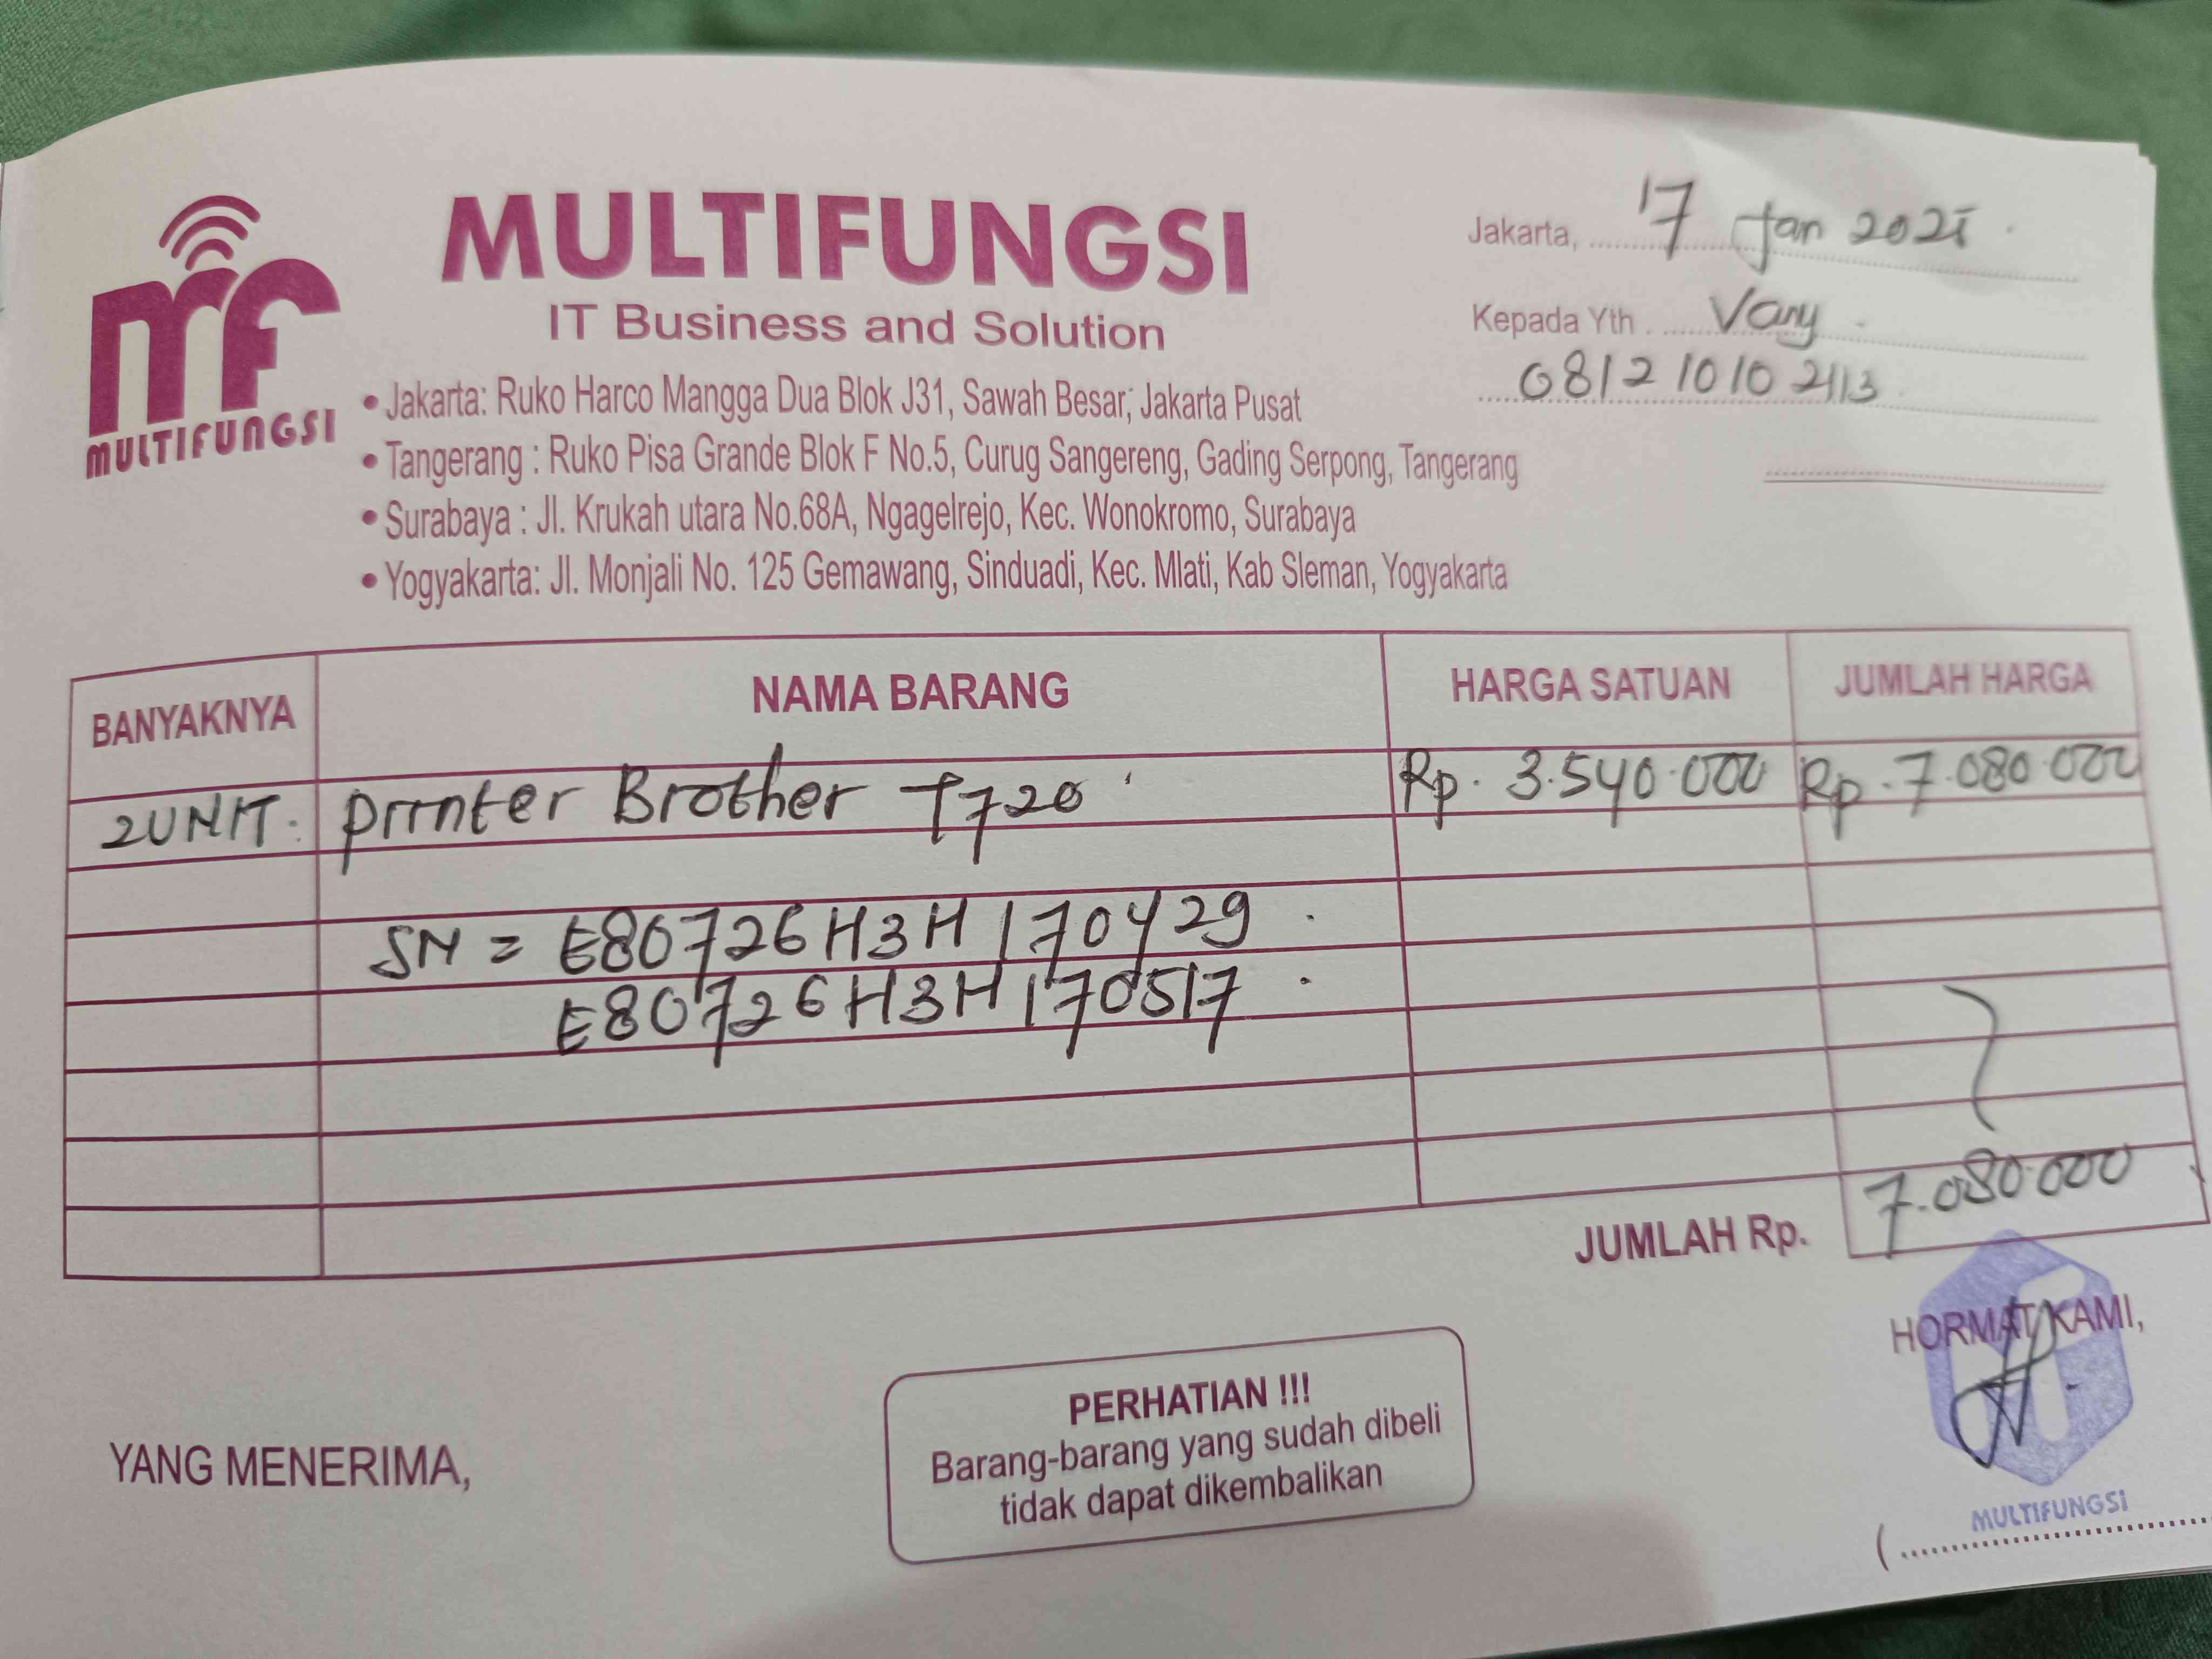 MULTIFUNGSI
MULTIFUNGSI
IT Business and Solution
• Jakarta: Ruko Harco Mangga Dua Blok J31, Sawah Besar, Jakarta Pusat
• Tangerang : Ruko Pisa Grande Blok F No.5, Curug Sangereng, Gading Serpong, Tangerang
• Surabaya : Jl. Krukah utara No.68A, Ngagelrejo, Kec. Wonokromo, Surabaya
• Yogyakarta: Jl. Monjali No. 125 Gemawang, Sinduadi, Kec. Mlati, Kab Sleman, Yogyakarta
Jakarta, 17 Jan
Kepada Yth . Vany
0812 1010 2113
BANYAKNYA NAMA BARANG HARGA SATUAN JUMLAH HARGA
2UNIT. Printer Brother T720 Rp. 3.540.000 Rp. 7.080.000
SN = E80726H3H170429
E80726H3H170517
JUMLAH Rp. 7.080.000
HORMAT KAMI,
MULTIFUNGSI
YANG MENERIMA,
PERHATIAN !!!
Barang-barang yang sudah dibeli
tidak dapat dikembalikan